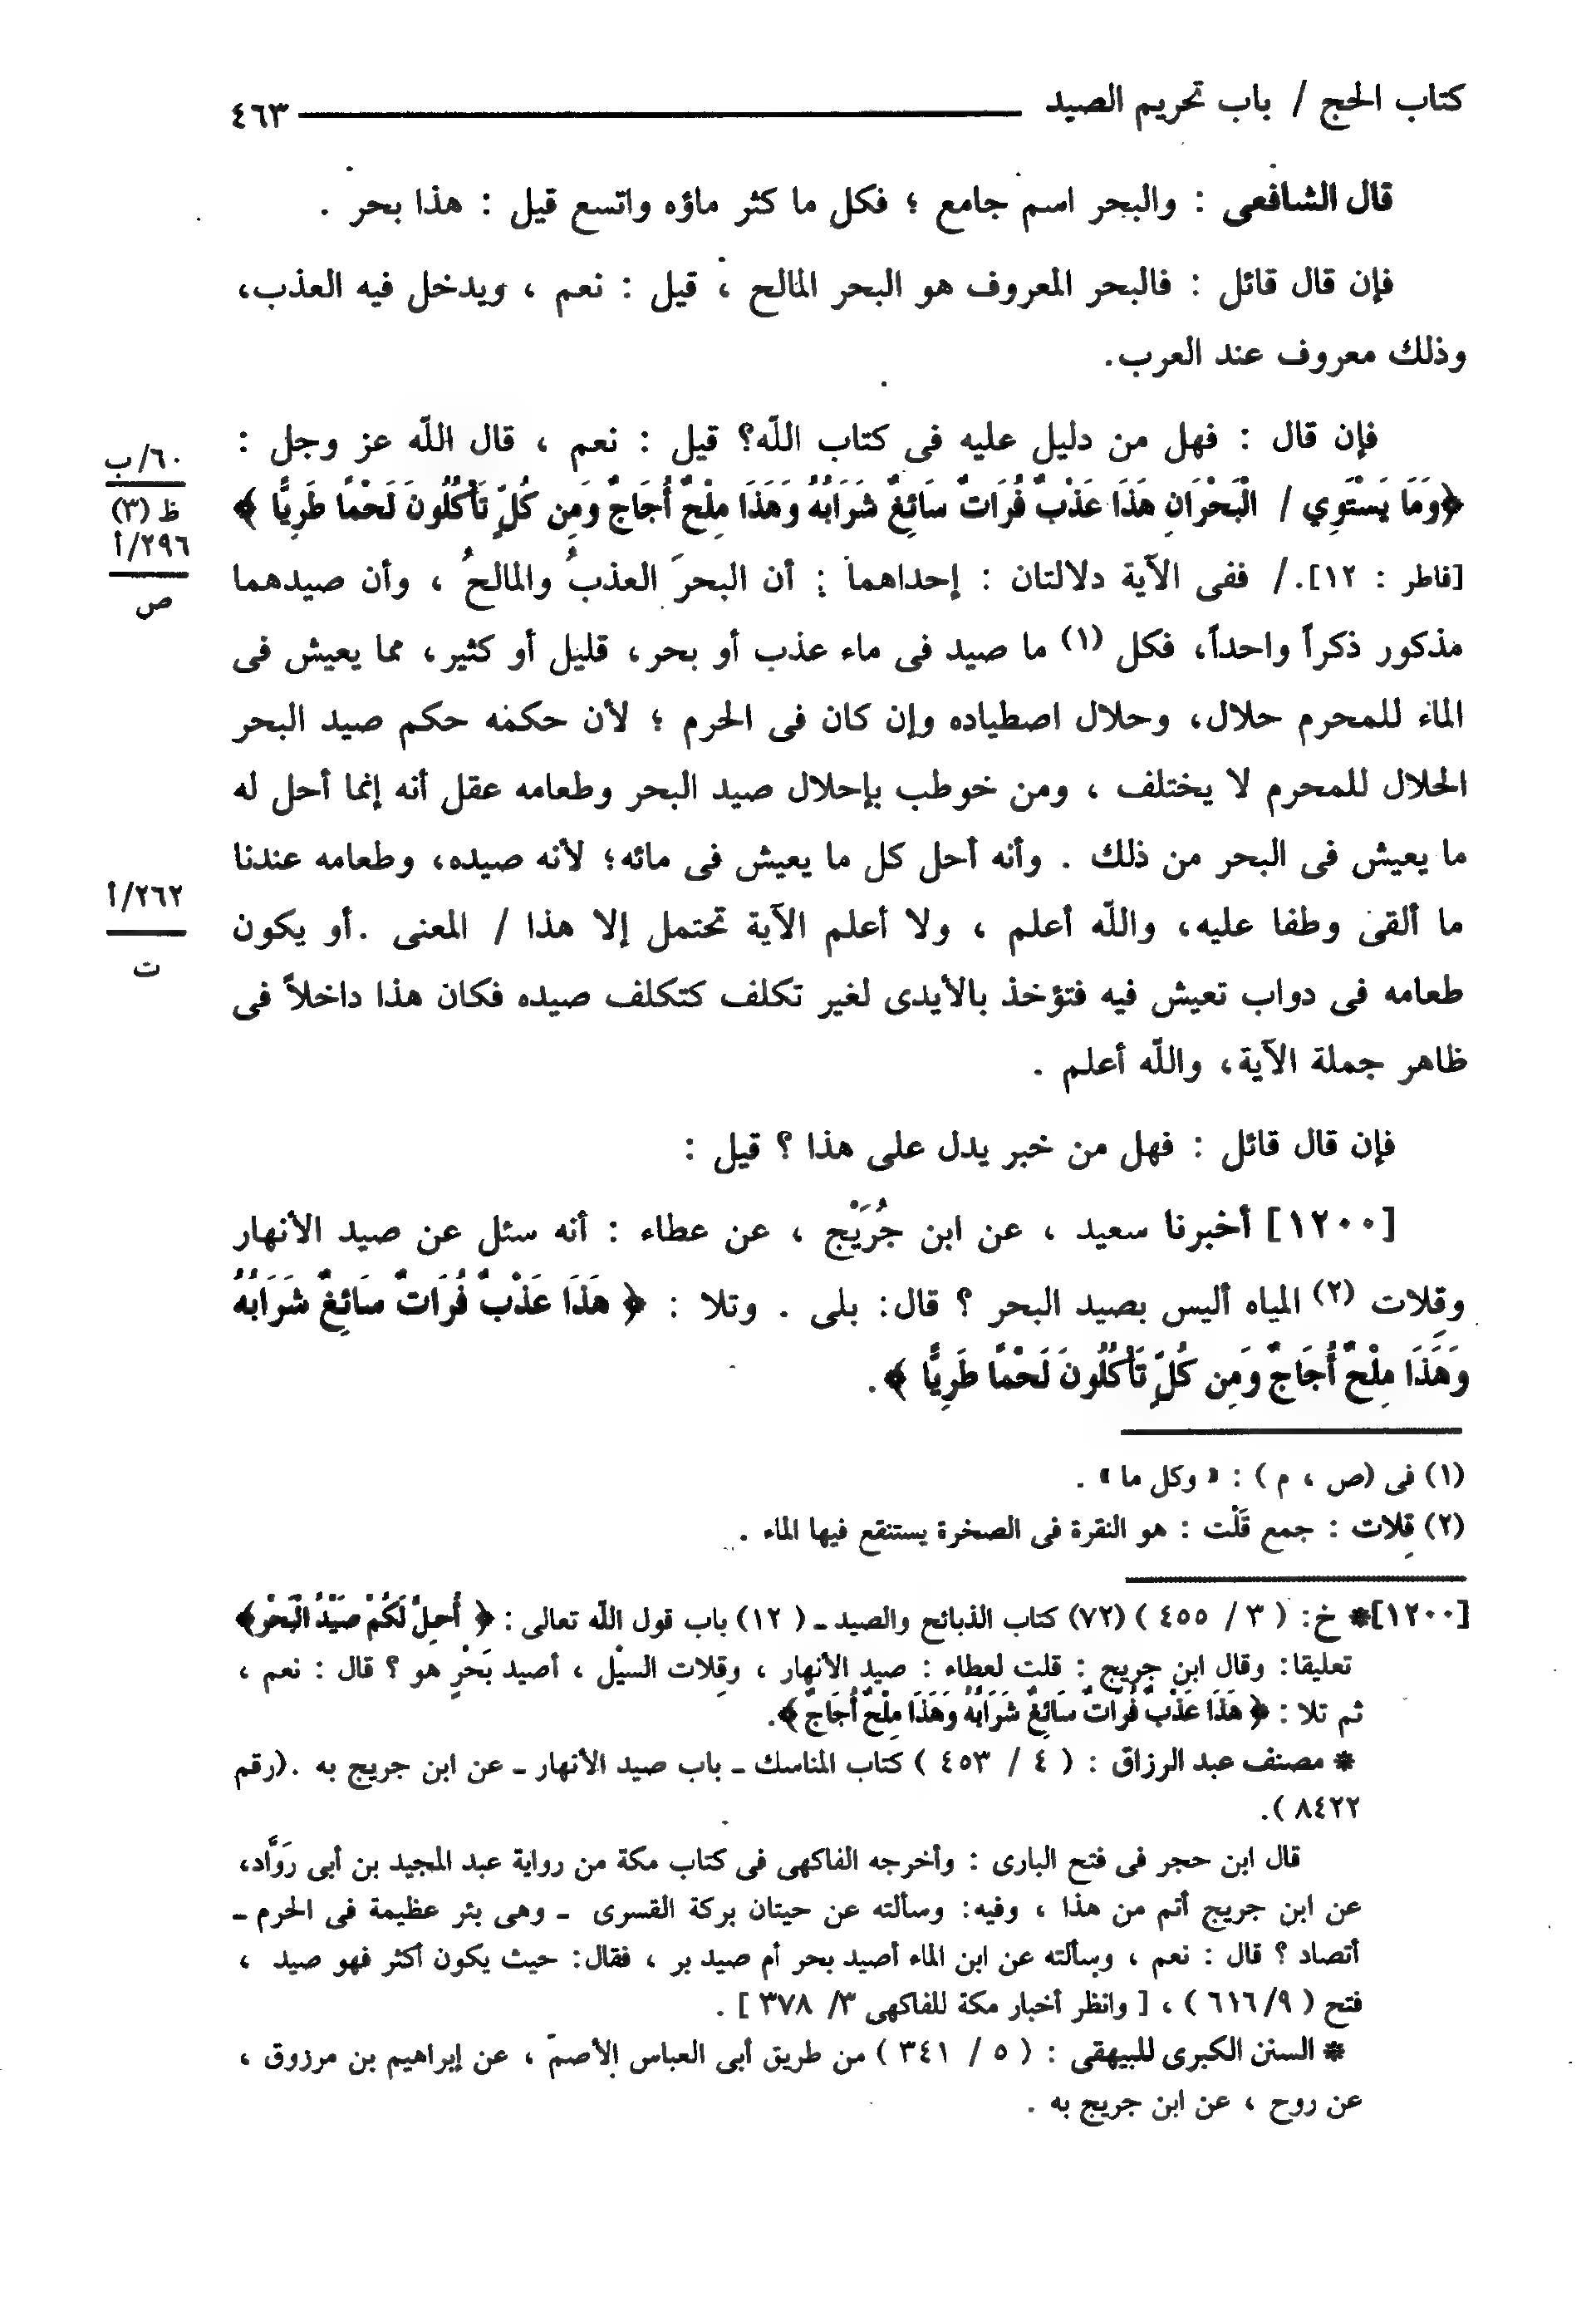 كتاب الحج / باب تحريم الصيد ٤٦٣
قال الشافعى : والبحر اسم جامع ؛ فكل ما كثر ماؤه واتسع قيل : هذا بحر .
فإن قال قائل : فالبحر المعروف هو البحر المالح ، قيل : نعم ، ويدخل فيه العذب،
وذلك معروف عند العرب.
فإن قال : فهل من دليل عليه فى كتاب اللّه؟ قيل : نعم ، قال اللّه عز وجل :
٦٠/ب
﴿وَمَا يَسْتَوِي / الْبَحْرَانِ هَذَا عَذْبٌ فُرَاتٌ سَائِغٌ شَرَابُهُ وَهَذَا مِلْحٌ أُجَاجٌ وَمِن كُلٍّ تَأْكُلُونَ لَحْمًا طَرِيًّا ﴾
ظ (٣)
٢٩٦/أ
[فاطر : ١٢]./ ففى الآية دلالتان : إحداهما : أن البحرَ العذبُ والمالحُ ، وأن صيدهما
ص
مذكور ذكراً واحداً، فكل (١) ما صيد فى ماء عذب أو بحر، قليل أو كثير، مما يعيش فى
الماء للمحرم حلال، وحلال اصطياده وإن كان فى الحرم ؛ لأن حكمه حكم صيد البحر
الحلال للمحرم لا يختلف ، ومن خوطب بإحلال صيد البحر وطعامه عقل أنه إنما أحل له
ما يعيش فى البحر من ذلك . وأنه أحل كل ما يعيش فى مائه؛ لأنه صيده، وطعامه عندنا
٢٦٢/أ
ما ألقى وطفا عليه، واللّه أعلم ، ولا أعلم الآية تحتمل إلا هذا / المعنى .أو يكون
ت
طعامه فى دواب تعيش فيه فتؤخذ بالأيدى لغير تكلف كتكلف صيده فكان هذا داخلاً فى
ظاهر جملة الآية، واللّه أعلم .
فإن قال قائل : فهل من خبر يدل على هذا ؟ قيل :
[١٢٠٠] أخبرنا سعيد ، عن ابن جُرَيْج ، عن عطاء : أنه سئل عن صيد الأنهار
وقِلات (٢) المياه أليس بصيد البحر ؟ قال: بلى . وتلا : ﴿ هَذَا عَذْبٌ فُرَاتٌ سَائِغٌ شَرَابُهُ
وَهَذَا مِلْحٌ أُجَاجٌ وَمِن كُلٍّ تَأْكُلُونَ لَحْمًا طَرِيًّا ﴾.
(١) فى (ص ، م ) : « وكل ما » .
(٢) قِلات : جمع قَلْت : هو النقرة فى الصخرة يستنقع فيها الماء .
[١٢٠٠]* خ: ( ٣ / ٤٥٥ ) (٧٢) كتاب الذبائح والصيد ـ ( ١٢) باب قول اللّه تعالى : ﴿ أُحِلَّ لَكُمْ صَيْدُ الْبَحْرِ﴾
تعليقا: وقال ابن جريج : قلت لعطاء : صيد الأنهار ، وقِلات السيْل ، أصيد بَحْرٍ هو ؟ قال : نعم ،
ثم تلا : ﴿ هَذَا عَذْبٌ فُرَاتٌ سَائِغٌ شَرَابُهُ وَهَذَا مِلْحٌ أُجَاجٌ ﴾.
* مصنف عبد الرزاق : ( ٤ / ٤٥٣ ) كتاب المناسك ـ باب صيد الأنهار ـ عن ابن جريج به .(رقم
٨٤٢٢ ).
قال ابن حجر فى فتح البارى : وأخرجه الفاكهى فى كتاب مكة من رواية عبد المجيد بن أبى رَوَّاد،
عن ابن جريج أتم من هذا ، وفيه: وسألته عن حيتان بركة القسرى ـ وهى بئر عظيمة فى الحرم ـ
أتصاد ؟ قال : نعم ، وسألته عن ابن الماء أصيد بحر أم صيد بر ، فقال: حيث يكون أكثر فهو صيد ،
فتح ( ٩/ ٦١٦ ) ، [ وانظر أخبار مكة للفاكهى ٣/ ٣٧٨ ] .
* السنن الكبرى للبيهقى : ( ٥ / ٣٤١ ) من طريق أبى العباس الأصمّ ، عن إبراهيم بن مرزوق ،
عن روح ، عن ابن جريج به .